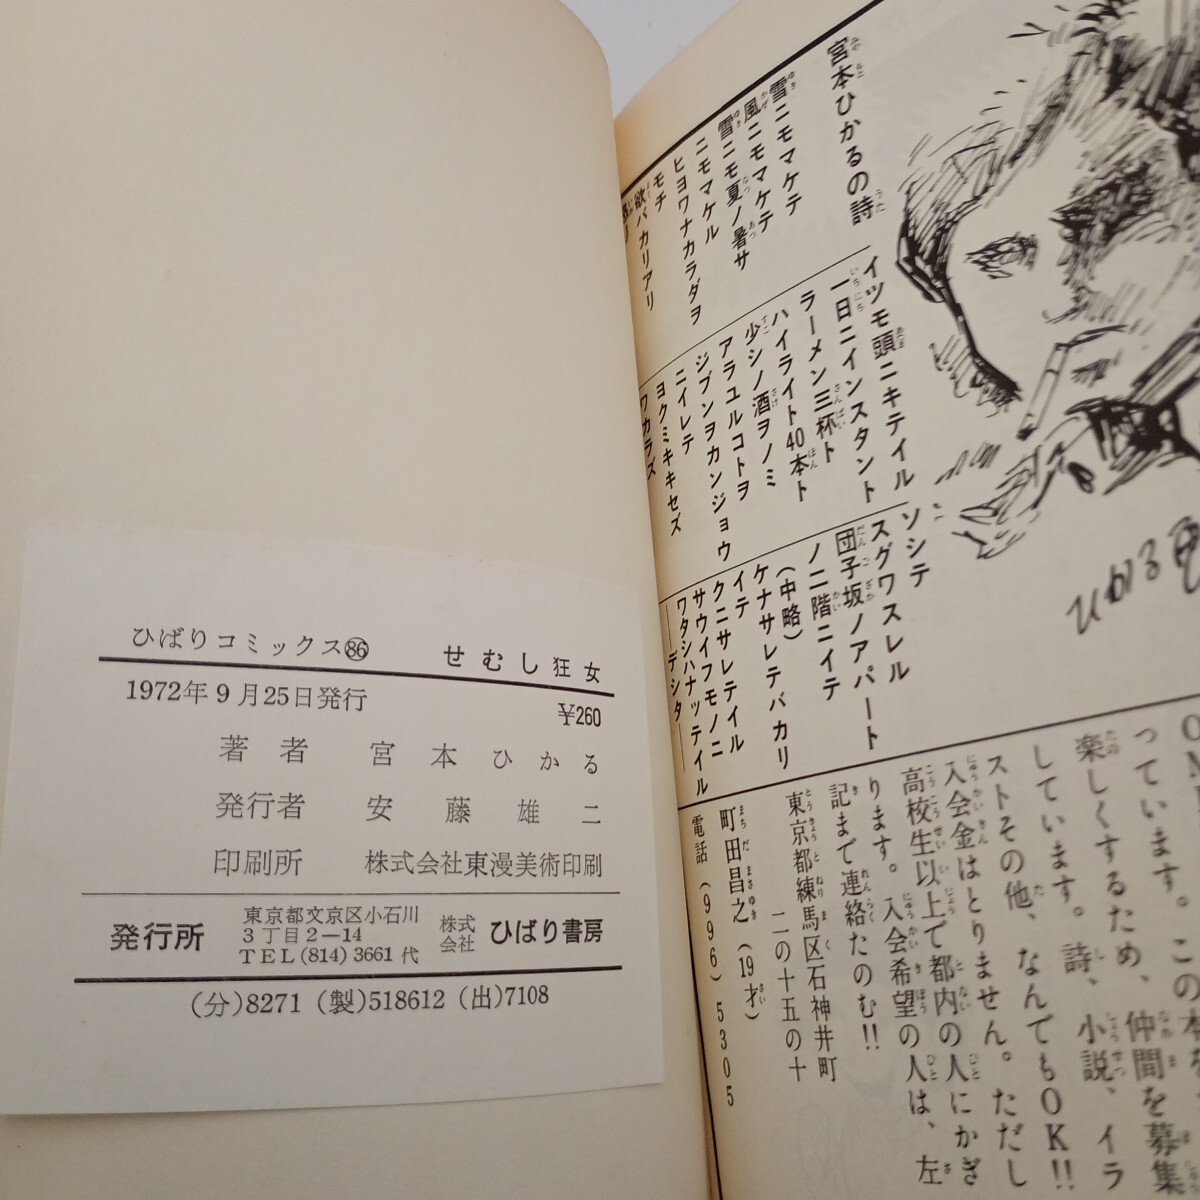 ひばりコミックス86 せむし狂女
1972年9月25日発行 ¥260
著者 宮本ひかる
発行者 安藤雄二
印刷所 株式会社東漫美術印刷
発行所
東京都文京区小石川
3丁目2-14
TEL(814)3661代
株式会社 ひばり書房
(分)8271 (製)518612 (出)7108
宮本ひかるの詩
雪ニモマケテ
風ニモマケテ
雪ニモ夏ノ暑サ
ニモマケル
ヒヨワナカラダヲ
モチ
欲バカリアリ
イツモ頭ニキテイル
一日ニインスタント
ラーメン三杯ト
ハイライト40本ト
少シノ酒ヲノミ
アラユルコトヲ
ジブンヲカンジョウ
ニイレテ
ヨクミキキセズ
ワカラズ
ソシテ
スグワスレル
団子坂ノアパート
ノ二階ニイテ
(中略)
ケナサレテバカリ
イテ
クニサレテイル
サウイフモノニ
ワタシハナッテイル
――デシタ――
ひかる
っています。この本を、
楽しくするため、仲間を募集
しています。詩、小説、イラ
ストその他、なんでもOK!!
入会金はとりません。ただし
高校生以上で都内の人にかぎ
ります。入会希望の人は、左
記まで連絡たのむ!!
東京都練馬区石神井町
二の十五の十
町田昌之(19才)
電話(996)5305